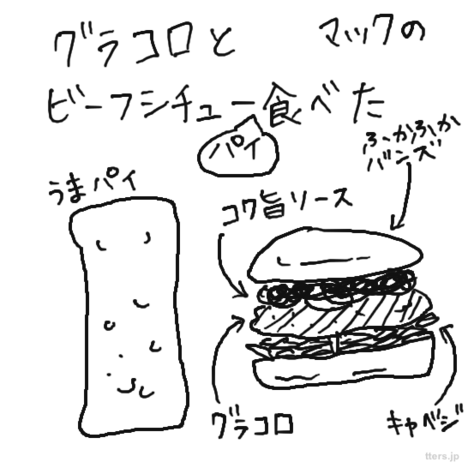 グラコロと マックの
ビーフシチュー食べた
パイ
ふかふか
バンズ
うまパイ
コク旨ソース
グラコロ
キャベジ
tters.jp